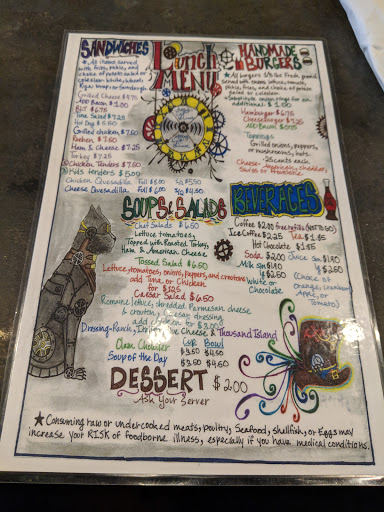 Lunch
MENU
SANDWICHES
★ All items served
with fries, pickle, and
choice of potato salad or
coleslaw. White, wheat,
Rye, wrap, or
Grilled Cheese
Add Bacon $1.00
BLT $6.75
Tuna Salad $7.25
Hot Dog
Grilled chicken $7.50
Reuben $7.50
Ham & Cheese $7.25
Turkey $7.25
Chicken Tenders $7.50
Kids Tenders $5.00
Chicken Quesadilla Full
Cheese Quesadilla Full
HANDMADE
BURGERS
★ All burgers 1/3 lbs. Fresh, ground
Served with onions, lettuce, tomato,
pickle, fries, and choice of potato
salad or coleslaw
★ Substitute onion rings for an
additional $1.00
Hamburger $6.75
Cheeseburger
Add Bacon
Toppings
Grilled onions, peppers,
or mushrooms, hots.
25 cents each.
Cheese- American, Cheddar,
Swiss or Provolone
SOUPS & SALADS
Chef Salads $6.50
Lettuce, tomatoes,
Topped with Roasted Turkey,
Ham & American Cheese
Tossed Salad $6.50
Lettuce, tomatoes, onions, peppers, and croutons
add Tuna or Chicken
for
Caesar Salad $6.50
Romaine lettuce, shredded Parmesan cheese
& croutons, Caesar dressing
add chicken for $3.00
Dressing-Ranch, Italian, Blue Cheese & Thousand Island
Cup Bowl
Clam Chowder $3.50 $4.50
Soup of the Day $3.50 $4.50
BEVERAGES
Coffee $2.00 free refills
Ice Coffee $2.25 Tea
Hot Chocolate
Soda $2.00 Juice Sm
Milk Sm
lg $2.50
White or
Chocolate
(Choice of
orange, cranberry,
Apple, or
Tomato)
DESSERT $2.00
Ask Your Server
★ Consuming raw or undercooked meats, poultry, seafood, shellfish, or Eggs may
increase your RISK of foodborne illness, especially if you have medical conditions.